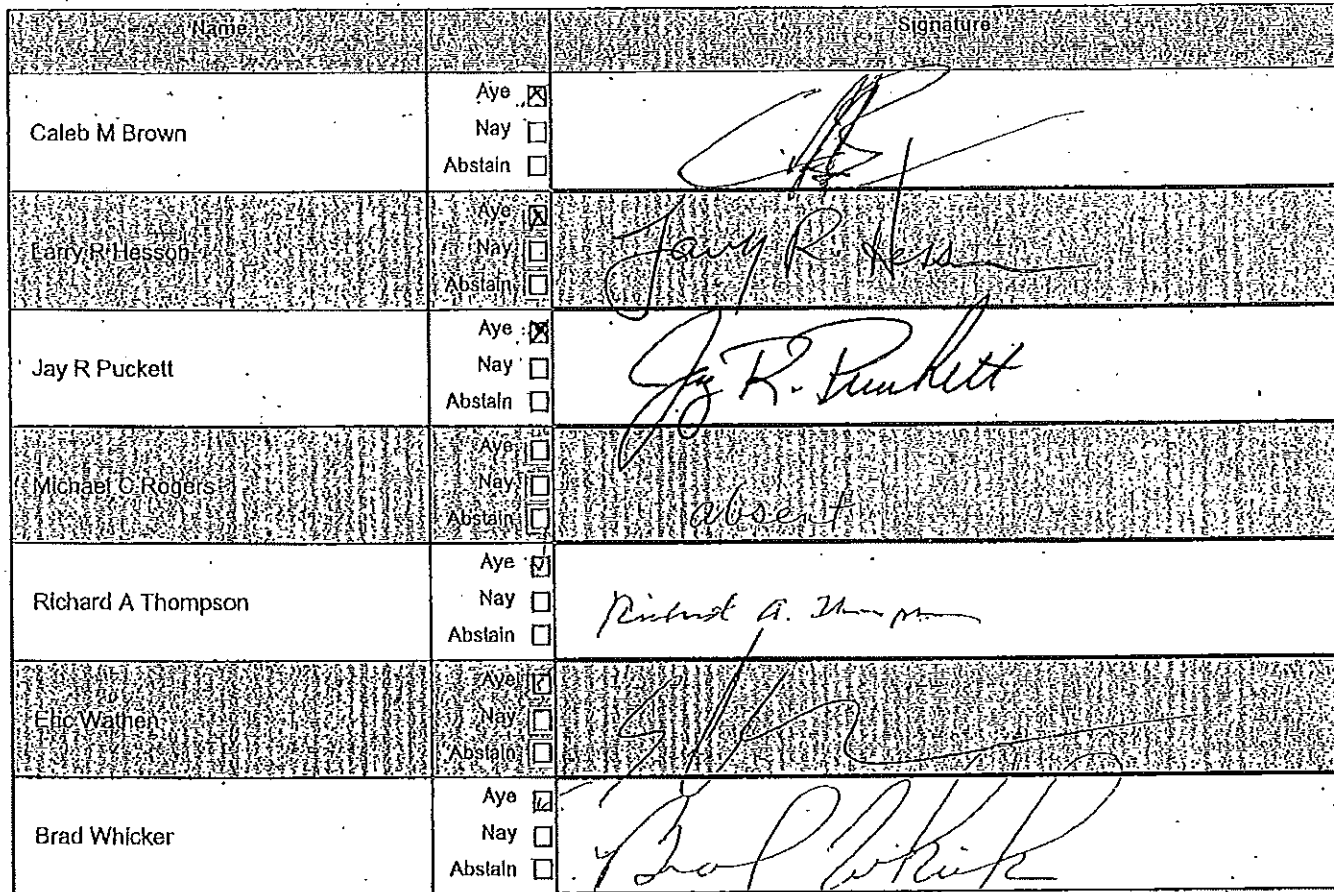 Name Signature
Caleb M Brown
Aye
Nay
Abstain
Larry R Hesson
Aye
Nay
Abstain
Larry R. Hess
Jay R Puckett
Aye
Nay
Abstain
Jay R. Puckett
Michael C Rogers
Aye
Nay
Abstain
absent
Richard A Thompson
Aye
Nay
Abstain
Richard A. Thompson
Eric Wathen
Aye
Nay
Abstain
Brad Whicker
Aye
Nay
Abstain
Brad Whicker